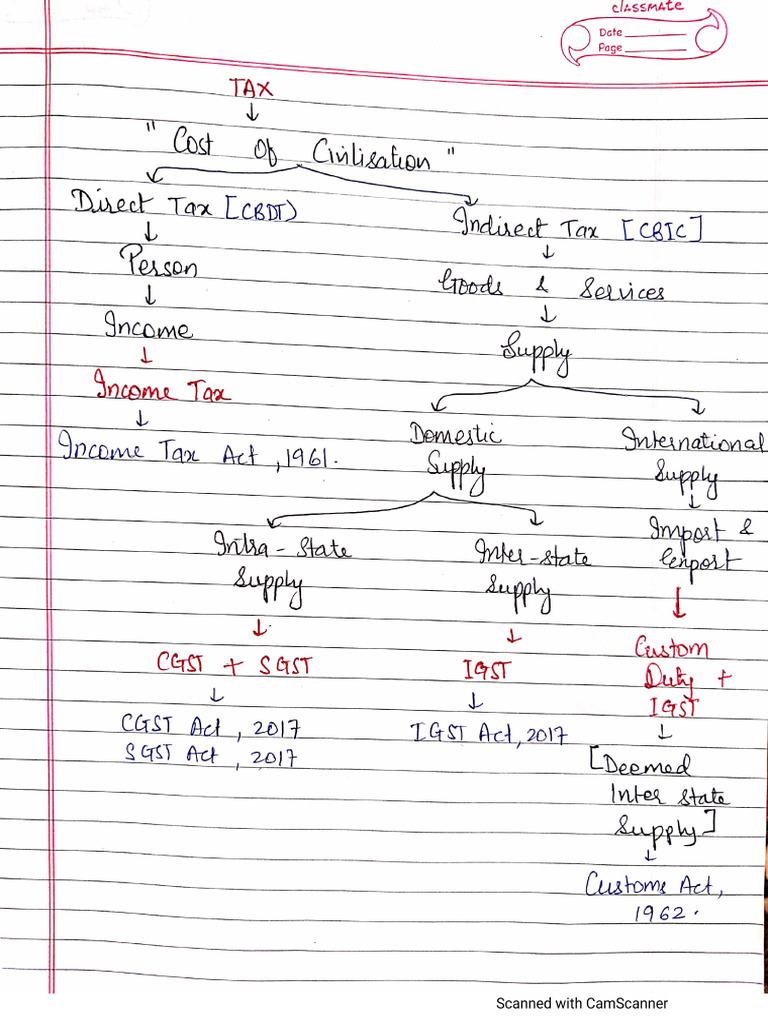 classmate
Date
Page
TAX
"Cost Of Civilisation"
Direct Tax [CBDT)
Indirect Tax [CBIC]
Person
Goods & Services
Income
Supply
Income Tax
Income Tax Act, 1961.
Domestic
Supply
International
Supply
Intra-State
Supply
Inter-State
Supply
Import &
Export
CGST + SGST
IGST
Custom
Duty +
IGST
CGST Act, 2017
SGST Act, 2017
IGST Act, 2017
[Deemed
Inter State
Supply]
Customs Act,
1962.
Scanned with CamScanner